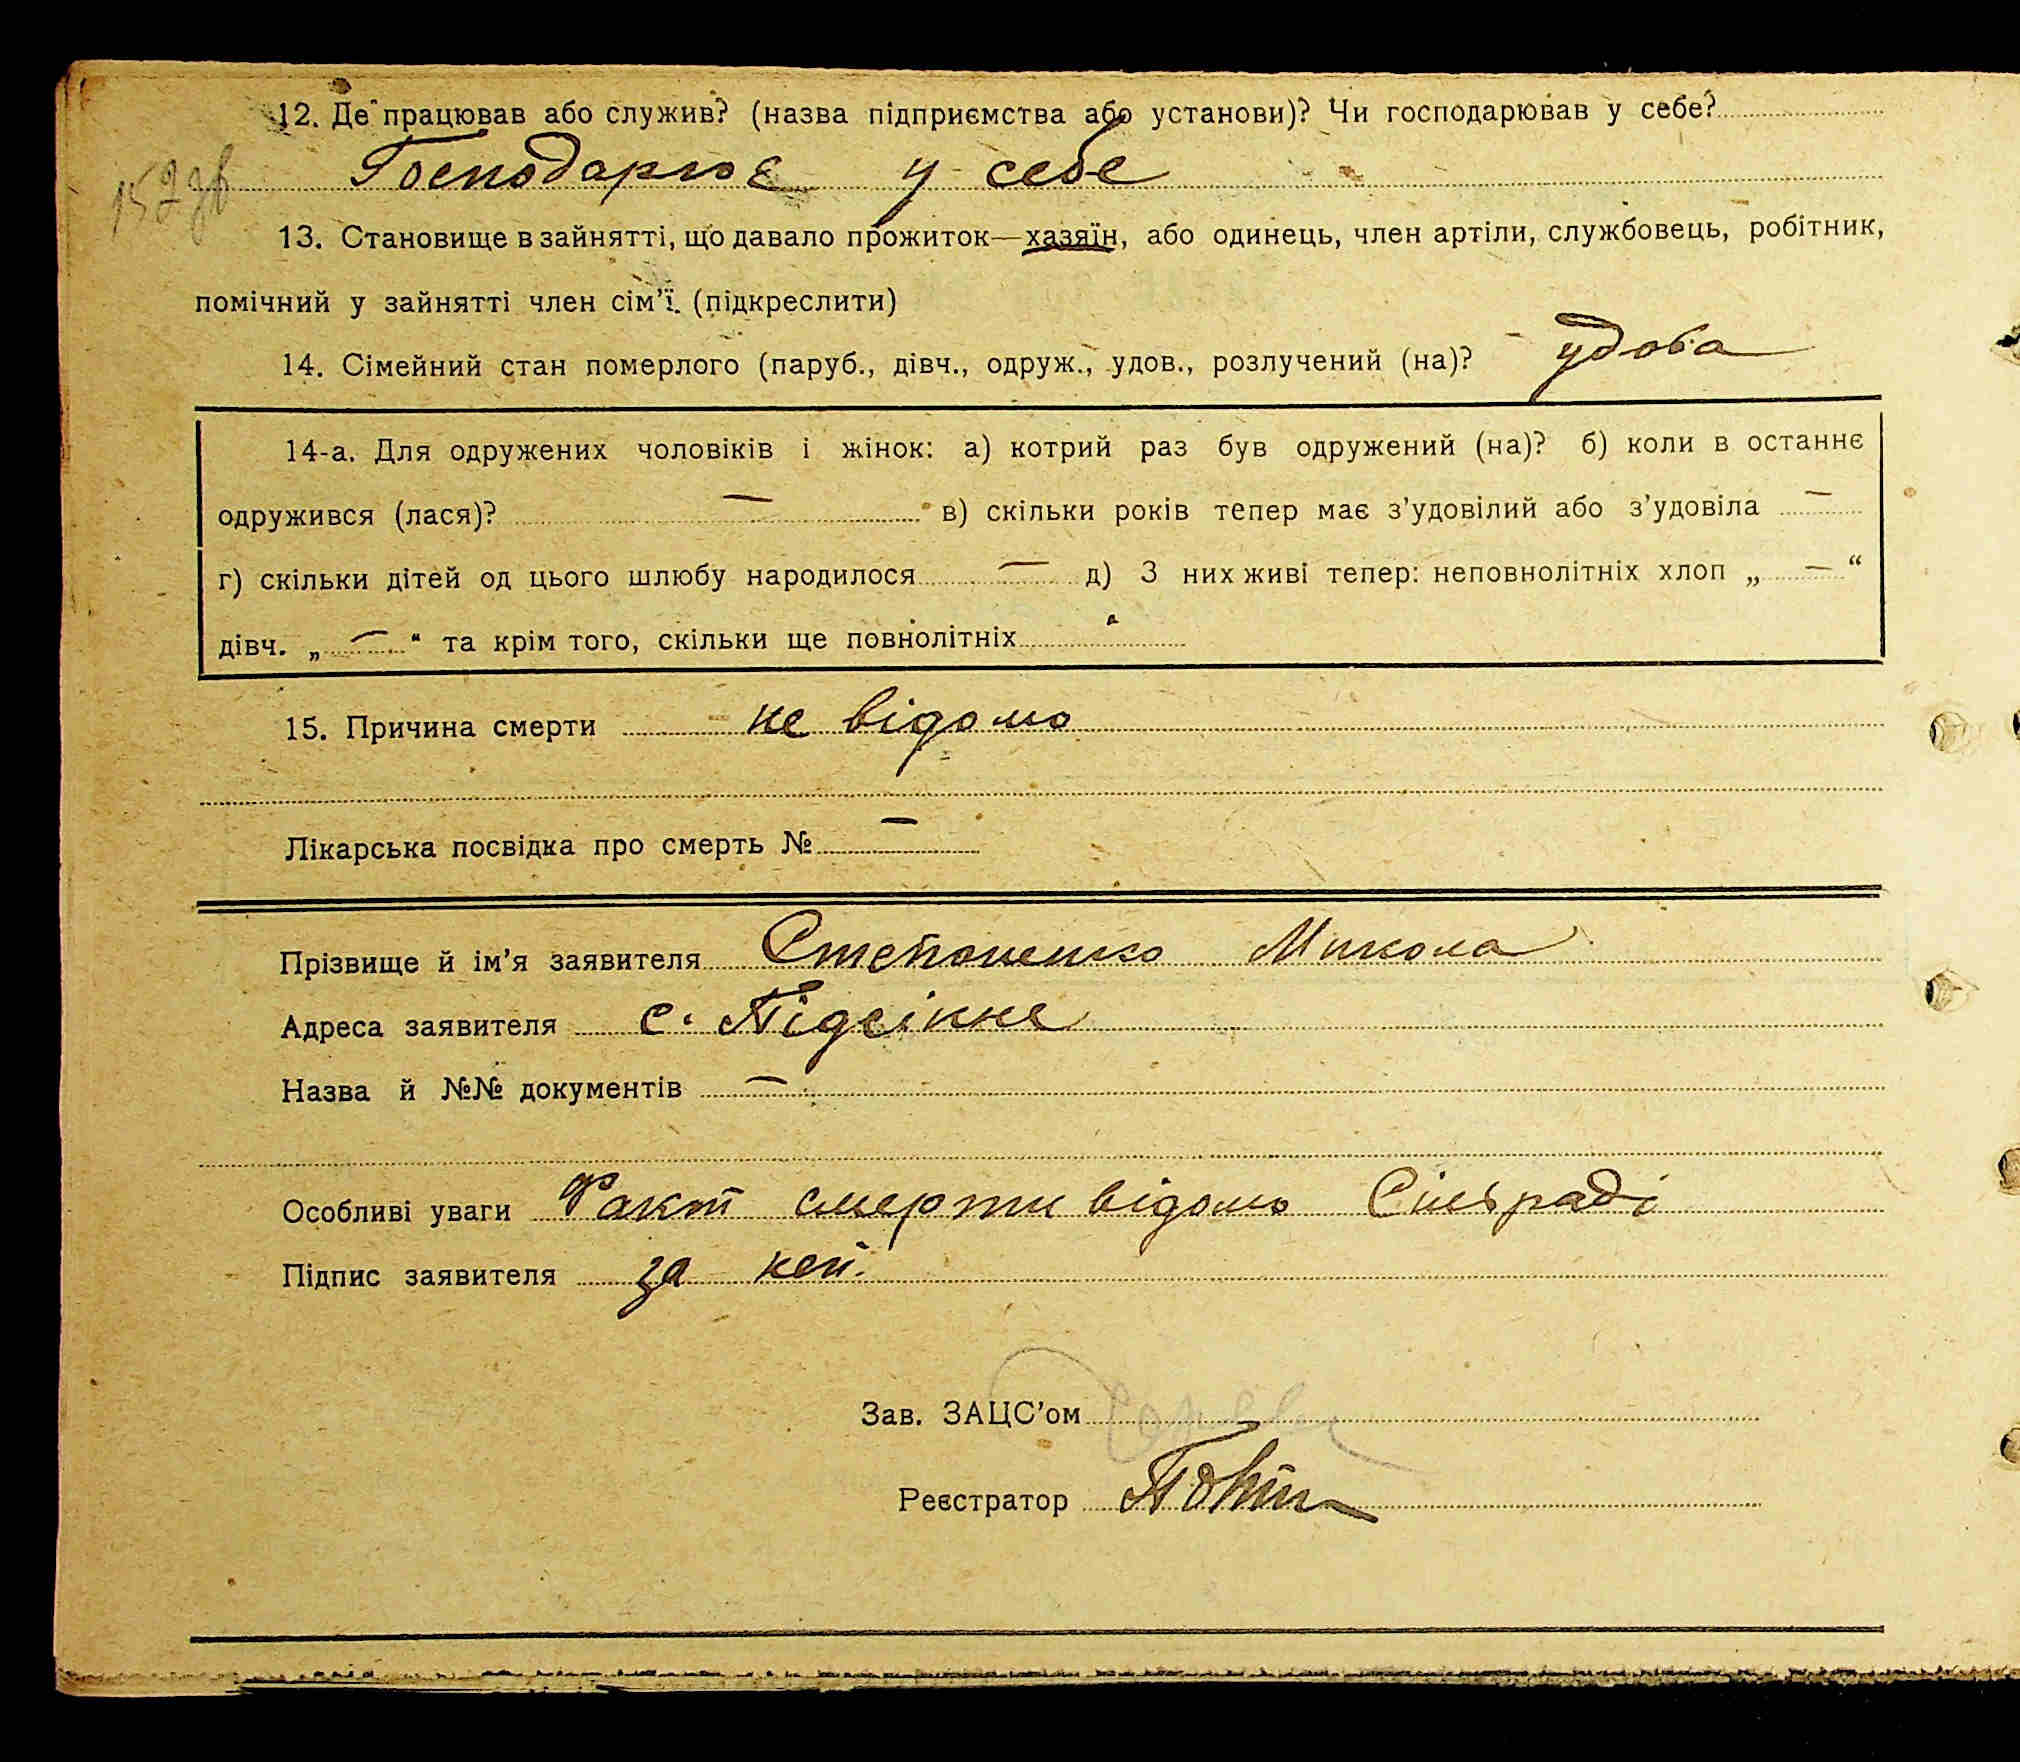 12. Де працював або служив? (назва підприємства або установи)? Чи господарював у себе?
Господарює у себе
157 зв
13. Становище в зайнятті, що давало прожиток—хазяїн, або одинець, член артіли, службовець, робітник,
помічний у зайнятті член сім’ї. (підкреслити)
14. Сімейний стан померлого (паруб., дівч., одруж., удов., розлучений (на)? удова
14-а. Для одружених чоловіків і жінок: а) котрий раз був одружений (на)? б) коли в останнє
одружився (лася)? — в) скільки років тепер має з’удовілий або з’удовіла —
г) скільки дітей од цього шлюбу народилося — д) З них живі тепер: неповнолітніх хлоп „ — “
дівч. „ — “ та крім того, скільки ще повнолітніх
15. Причина смерти не відомо
Лікарська посвідка про смерть № —
Прізвище й ім’я заявителя Степаненко Микола
Адреса заявителя с. Підсінне
Назва й №№ документів —
Особливі уваги Факт смерти відомо Сільраді
Підпис заявителя за неп.
Зав. ЗАЦС’ом
Реєстратор